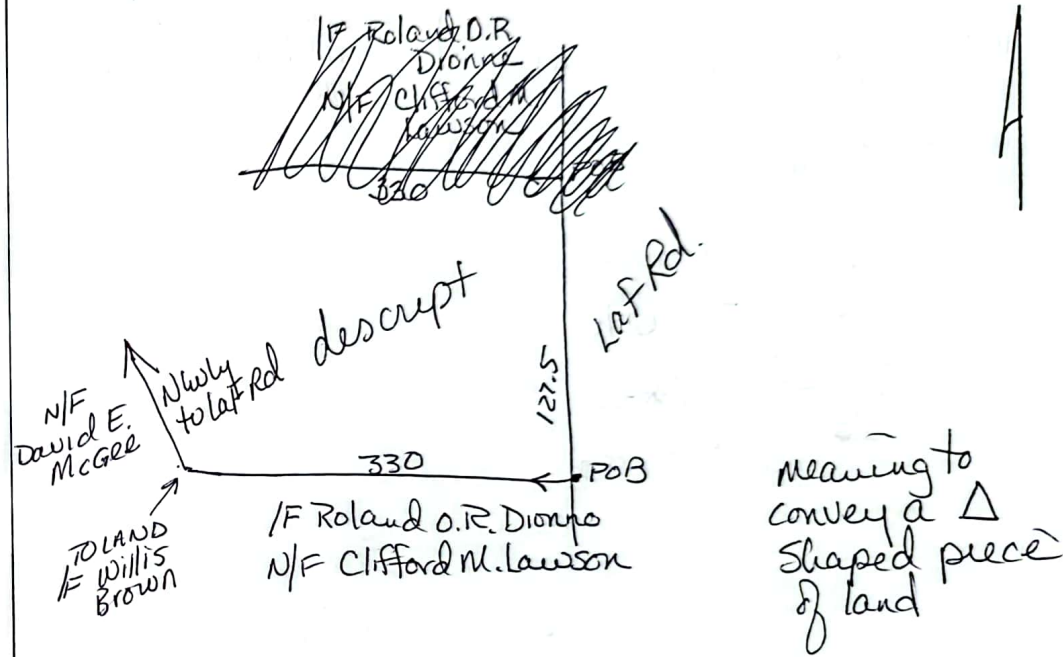 /F Roland O.R.
Dionne
N/F Clifford M.
Lawson
330
LaF Rd.
descript
Nwly
to LaF Rd
127.5
N/F
David E.
McGee
330
POB
TO LAND
/F Willis
Brown
/F Roland O.R. Dionno
N/F Clifford M. Lawson
meaning to
convey a Δ
shaped piece
of land